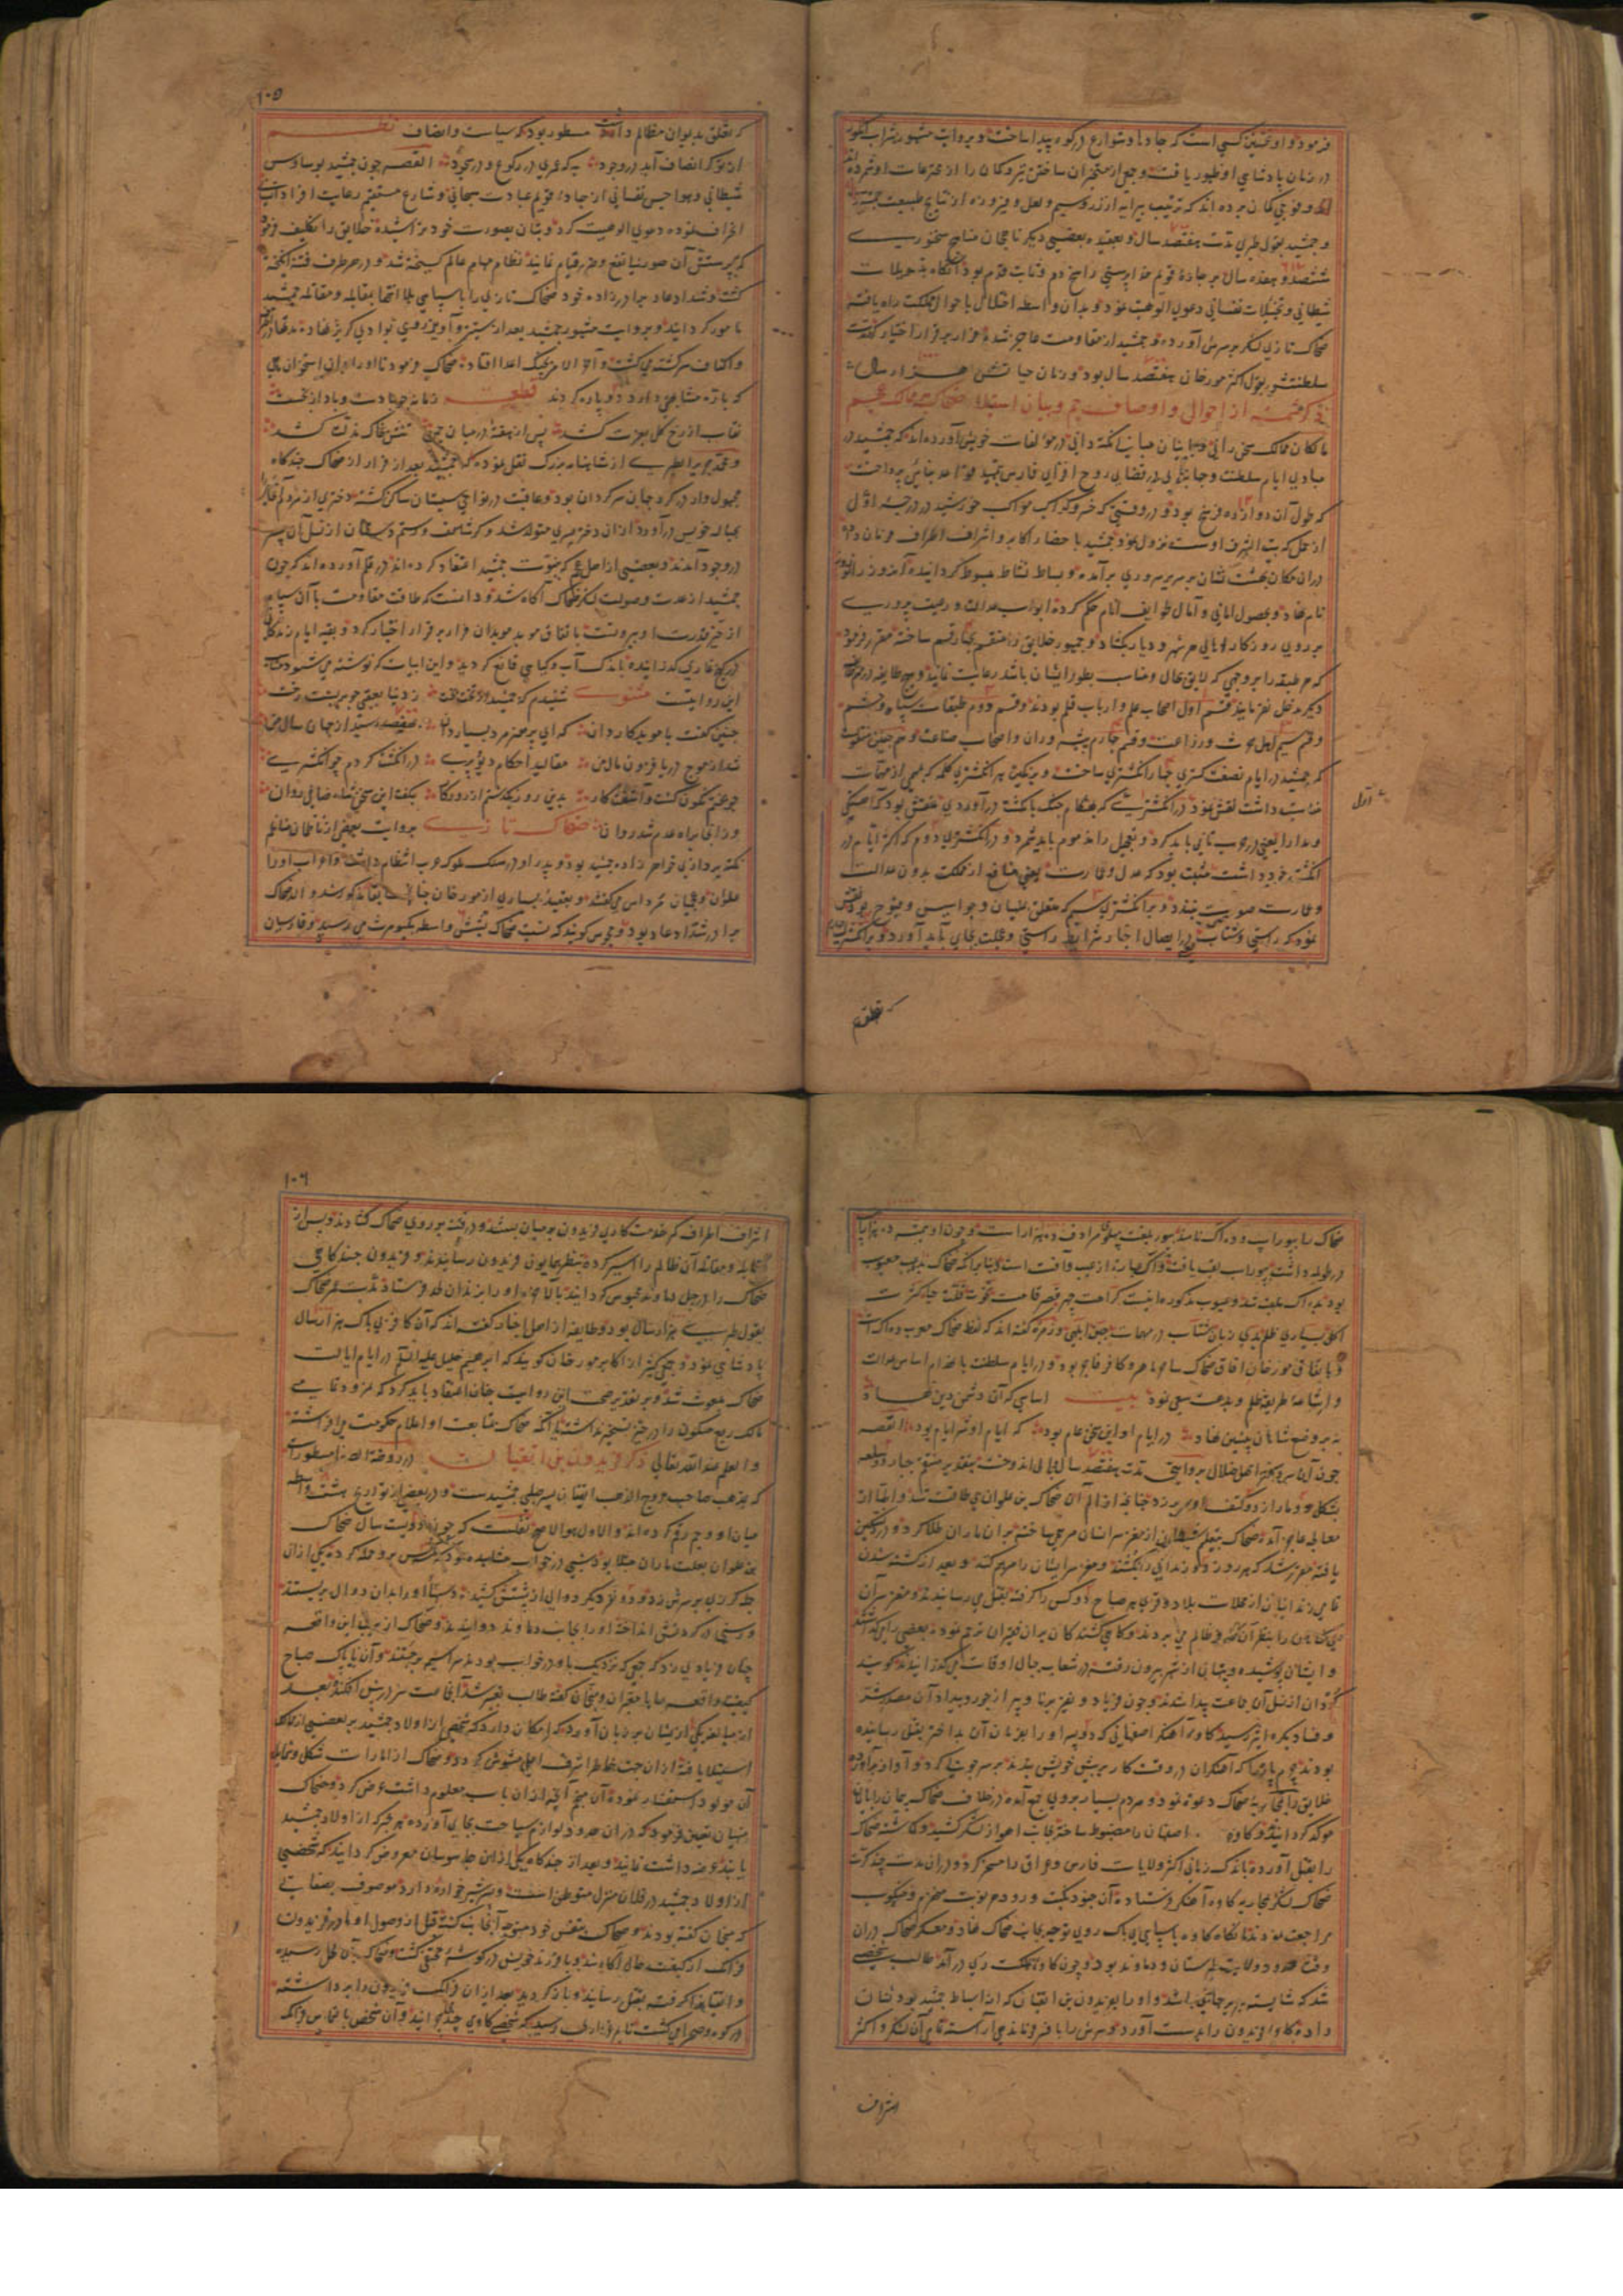 فرمود و او نخستین کسی است که جاده‌ها و شوارع در کوه پیدا ساخت و بروایت مشهور شراب انگور
در زمان پادشاهی او ظهور یافت و جمعی از متبحران ساختن تیر و کمان را از مخترعات او شمرده
و جمشید بقول طبری مدت هفتصد سال و بعقیده بعضی دیگر
ششصد و هفده سال بر جاده قویم خدا پرستی راسخ دم و ثابت قدم بود آنگاه
شیطانی و تخیلات نفسانی دعوی الوهیت نمود و بدان واسطه اختلال باحوال مملکت راه یافته
ضحاک تازی لشکر بر سرش آورده و جمشید از مقاومت عاجز شده فرار بر قرار اختیار کرد
سلطنتش بقول اکثر مورخان هفتصد سال بود و زمان حیاتش هزار سال
ذکر شمه از احوال و اوصاف جم و بیان استیلاء ضحاک بر ممالک عجم
مالکان ممالک سخن رانی و بانیان مبانی نکته دانی در مؤلفات خویش آورده‌اند که جمشید در
مبادی ایام سلطنت و جهانبانی در فضای روح افزای فارس
که طول آن دوازده فرسخ بود و در وقتی که خسرو کواکب مواکب خورشید در درجه اول
از حمل که بیت الشرف اوست نزول نمود جمشید باحضار اکابر و اشراف اطراف فرمان داده
در آن مکان بهشت نشان بر سریر سروری برآمده و بساط نشاط مبسوط گردانیده آن روز را نوروز
نام نهاد و بحصول امانی و آمال طوایف انام حکم کرده ابواب عدالت و رعیت پروری
بر روی روزگار اهالی هر شهر و دیار بگشاد و جمهور خلایق را منقسم بچهار قسم ساخته مقرر فرمود
که هر طبقه را بر وجهی که لایق بحال و مناسب بطور ایشان باشد رعایت نمایند و هیچ طایفه در مهم
دیگر مدخل ننمایند قسم اول اصحاب علم و ارباب قلم بودند و قسم دوم طبقات سپاه و حشم
و قسم سیم اهل حرث و زراعت و قسم چهارم پیشه وران و اصحاب صناعت و هم چنین منقولست
که جمشید در ایام نصفت گستری چهار انگشتری ساخت و بر نگین هر انگشتری کلمه که بمهمی از مهمات
مناسبت داشت نقش نمود در انگشتری که بهنگام جنگ بانگشت در آوردی منقش بود که آهستگی
و مدارا یعنی در حرب تانی باید کرد و تعجیل را مذموم باید شمرد و در انگشتری دوم که اکثر ایام در
انگشت خود داشت مثبت بود که عدل و عمارت یعنی منافع از مملکت بدون عدالت
و عمارت صورت نبندد و بر انگشتری سیم که متعلق بمنهیان و جواسیس
نمود که راستی و شتاب یعنی در ایصال اخبار شرایط راستی و عجلت بجای باید آورد و بر انگشتری چهارم
اول
که تعلق
۱۰۵
که تعلق بدیوان مظالم داشت مسطور بود که سیاست و انصاف نظم
القصه چون جمشید بوساوس
شیطانی و هواجس نفسانی از جاده قویم عبادت سبحانی و شارع مستقیم رعایت
انحراف نموده دعوی الوهیت کرد و بتان بصورت خود تراشیده خلایق را تکلیف فرمود
که بپرستش آن صور نیابتی قیام نمایند نظام مهام عالم گسیخته شد و در هر طرف فتنه انگیخته
گشت و شداد عاد برادرزاده خود ضحاک تازی را با سپاهی بلا انتها بمقابله و مقاتله جمشید
مامور گردانید و بروایت مشهور جمشید بعد از ستیز و آویز روی بوادی گریز نهاد و مدتها در
و اکناف سرگشته می گشت و آخر الامر بچنگ اعدا افتاد ضحاک فرمود تا او را با استخوان ماهی
که باره مشابهتی دارد دو پاره کردند قطعه زمانه چو باد است و باد از نخست
نقاب از رخ گل بعزت کشد پس از هفته در میان چمن تنش بخاک مذلت کشد
و محمد جریر الطبری از شاهنامه بزرگ نقل نموده که جمشید بعد از فرار از ضحاک چندگاه
مجهول وار در گرد جهان سرگردان بود و عاقبت در نواحی سیستان ساکن گشته دختری از مردم آنجا
بحباله خویش در آورد از آن دختر پسری متولد شد و گرشاسف و رستم دستان از نسل آن پسر
در وجود آمدند و بعضی از اهل عجم که بنبوت جمشید اعتقاد کرده‌اند در قلم آورده‌اند که چون
جمشید از حدت و صولت لشکر ضحاک آگاه شد و دانست که طاقت مقاومت با آن سپاه
از حیز قدرت او بیرونست باتفاق موبد موبدان فرار بر قرار اختیار کرد و بقیه ایام زندگانی
در کنج غاری گذرانیده باندک آب و گیاهی قانع گردید و این ابیات که نوشته می شود مناسب
این روایتست مثنوی شنیدم که جمشید ز دنیا بعقبی چو بربست رخت
چنین گفت با موبد کاردان که ای پر هنر مرد بسیاردان
بگفت این سخن شاه صافی روان
وز آنجا براه عدم شد روان ضحاک تازی بروایت بعضی از ناظمان مناظم
نکته پردازی خواهرزاده جمشید بود و پدر او در سلک ملوک عرب انتظام داشت و اعراب او را
علوان و عجمیان مرداس می گفتند و بعقیده بسیاری از مورخان چنانچه سابقا مذکور شد والد ضحاک
برادر شداد عاد بود و مجوس گویند که نسب ضحاک بشش واسطه بکیومرث می رسید و فارسیان
ضحاک را بیوراسب و ده آک نامند بیور بلغت پهلوی مرادف ده هزار است و چون او همیشه ده هزار اسب
در طویله داشت بیوراسب لقب یافت و آک عبارت از عیب و آفت است و بنابر آنکه ضحاک بده عیب معیوب
بود ده آک ملقب شد و عیوب مذکوره اینست کراهت چهره قصر قامت نخوت
اکل بسیاری ظلم بدی زبان شتاب در مهمات جبن ابلهی و زمره گفته‌اند که لفظ ضحاک معرب ده آک است
و باتفاق مورخان آفاق ضحاک ساحر ماهر و کافر فاجر بود و در ایام سلطنت بانهدام اساس عدالت
و اشاعه طریقه ظلم و بدعت سعی نمود بیت اساسی که آن دشمن دین نهاد
نه بر وضع شاهان پیشین نهاد در ایام او این سخن عام بود که ایام او شر ایام بود القصه
چون آن سرور اهل ضلال بروایتی مدت هفتصد سال
بشکل دو مار از دو کتف او سر بر زد چنانچه از الم آن ضحاک بن علوان بی طاقت شد و اطبا از
معالجه عاجز آمدند ضحاک بتعلیم شیطان از مغز سر انسان مرهمی ساخته بر آن ماران طلا کرد و درد تسکین
یافته مقرر شد که هر روز دو زندانی را کشته و مغز سر ایشان را مرهم کنند و بعد از کشته شدن
تمامی زندانیان از محلات بلاد و قری هر صباح دو کس را گرفته بقتل می رسانیدند و مغز سر آن
و ایشان پوشیده و پنهان از شهر بیرون رفته در شعاب جبال اوقات می گذرانیدند گویند
کردان از نسل آن جماعت پیدا شدند و چون فریاد و نفیر برنا و پیر از جور و بیداد آن مصدر شر
و فساد بکره اثیر رسید کاوه آهنگر اصفهانی که دو پسر او را بفرمان آن بداختر بقتل رسانیده
بودند چرم پاره را که آهنگران در وقت کار بر پیش خویش بندند بر سر چوبی کرد و آواز برآورده
خلایق را بمحاربه ضحاک دعوت نمود و مردم بسیار بر وی جمع آمده در خلاف ضحاک پیمان را بایمان
موکد گردانیدند و کاوه اصفهان را مضبوط ساخته بجانب اهواز لشکر کشید و گماشته ضحاک
را بقتل آورده باندک زمانی اکثر ولایات فارس و عراق را مسخر کرد و در آن مدت چند کرت
ضحاک لشکر بمحاربه کاوه آهنگر فرستاده آن جنود نکبت ورود هر نوبت منهزم و منکوب
مراجعت نمودند تا آنگاه کاوه با سپاهی بی باک روی توجه بجانب ضحاک نهاد و معسکر ضحاک در آن
وقت حدود ولایت طبرستان و دماوند بود و چون کاوه بمملکت ری در آمد طالب شخصی
شد که شایسته سریر جهانبانی باشد و او را بفریدون بن اتقیان که از اسباط جمشید بود نشان
دادند کاوه فریدون را بدست آورد و سرش را بافسر فرماندهی آراسته تمامی آن لشکر و اکثر
اشراف
۱۰۶
اشراف اطراف کمر خدمتکاری فریدون بر میان بستند و در فتنه بر روی ضحاک گشادند و پس از
مقابله و مقاتله آن ظالم را اسیر کرده بنظر همایون فریدون رسانیدند و فریدون چندگاهی
ضحاک را در جبل دماوند محبوس گردانید بالاخره او را بزندان لحد فرستاد مدت عمر ضحاک
بقول طبری هزار سال بود و طایفه از اهل اخبار گفته‌اند که آن کافر بی باک هزار سال
پادشاهی نمود و جمعی کثیر از اکابر مورخان گویند که ابراهیم خلیل علیه السلام در ایام ایالت
ضحاک مبعوث شد و بر تقدیر صحت این روایت چنان اعتقاد باید کرد که نمرود تمامی
ممالک ربع مسکون را در حیز تسخیر نداشته یا آنکه ضحاک بمتابعت او اعلام حکومت می افراشته
و العلم عند الله تعالی ذکر فریدون بن اتقیان در روضة الصفا مسطور است
که بمذهب صاحب مروج الذهب اتقیان پسر صلبی جمشید است و در بعضی از تواریخ هشت واسطه
میان او و جم رقم کرده‌اند و الاول هو الاصح نقلست که چون دویست سال ضحاک
بن علوان بعلت ماران مبتلا بود شبی در خواب مشاهده نمود که سه کس بر وی حمله کرده یکی از آن
جمله گرزی بر سرش زد و دو نفر دیگر دوالی از پشتش کشیده دست او را بدان دوال بربستند
و رسنی در گردنش انداخته او را بجانب دماوند دوانیدند و ضحاک از هول این واقعه
چنان فریادی زد که جمعی که نزدیک باو در خواب بودند سراسیمه برجستند و آن ناپاک صباح
کیفیت واقعه را با معبران و منجمان گفته طالب تعبیر شد آن جماعت سر در پیش افکندند بعد
از مبالغه یکی از ایشان بر زبان آورد که امکان دارد که شخصی از اولاد جمشید بر بعضی از ممالک
استیلا یافته از آن جهت خاطر اشرف اعلی مشوش گردد و ضحاک از امارات شکل و شمایل
آن مولود استفسار نموده آن منجم آنچه از آن باب معلوم داشت عرض کرد و ضحاک
منهیان تعیین فرمود که در آن حدود لوازم سیاحت بجای آورده هر خبر که از اولاد جمشید
یابند عرضه داشت نمایند و بعد از چندگاه یکی از این جاسوسان معروض گردانید که شخصی
از اولاد جمشید در فلان منزل متوطن است و پسر شیرخواره دارد موصوف بصفاتی
که منجمان گفته بودند و ضحاک بنفس خود متوجه آنجانب گشته قبل از وصول او مادر فریدون
فرانک از کیفیت حال آگاه شد و با فرزند خویش در گوشه مختفی گشت و ضحاک بدان محل رسیده
و اتقیان را گرفته بقتل رسانید و باز گردید بعد از آن فرانک فریدون را برداشته
در کوه و صحرا می گشت تا بمرغزاری رسید که شخصی گاوی چند می چرانید و آن شخص بالتماس فرانک